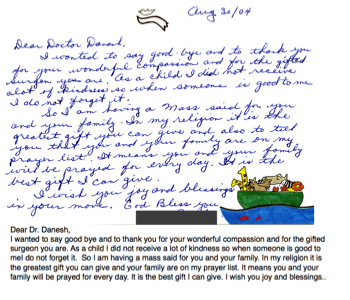 Aug 30/04
Dear Doctor Danesh,
I wanted to say good-bye and to thank you
for your wonderful compassion and for the gifted
surgeon you are. As a child I did not receive
alot of kindness so when someone is good to me
I do not forget it.
So I am having a Mass said for you
and your family. In my religion it is the
greatest gift you can give and also to tell
you that you and your family are on my
prayer list. It means you and your family
will be prayed for every day. It is the
best gift I can give.
I wish you joy and blessings
in your move. God Bless you
Dear Dr. Danesh,
I wanted to say good bye and to thank you for your wonderful compassion and for the gifted
surgeon you are. As a child I did not receive a lot of kindness so when someone is good to
meI do not forget it. So I am having a mass said for you and your family. In my religion it is
the greatest gift you can give and your family are on my prayer list. It means you and your
family will be prayed for every day. It is the best gift I can give. I wish you joy and blessings..